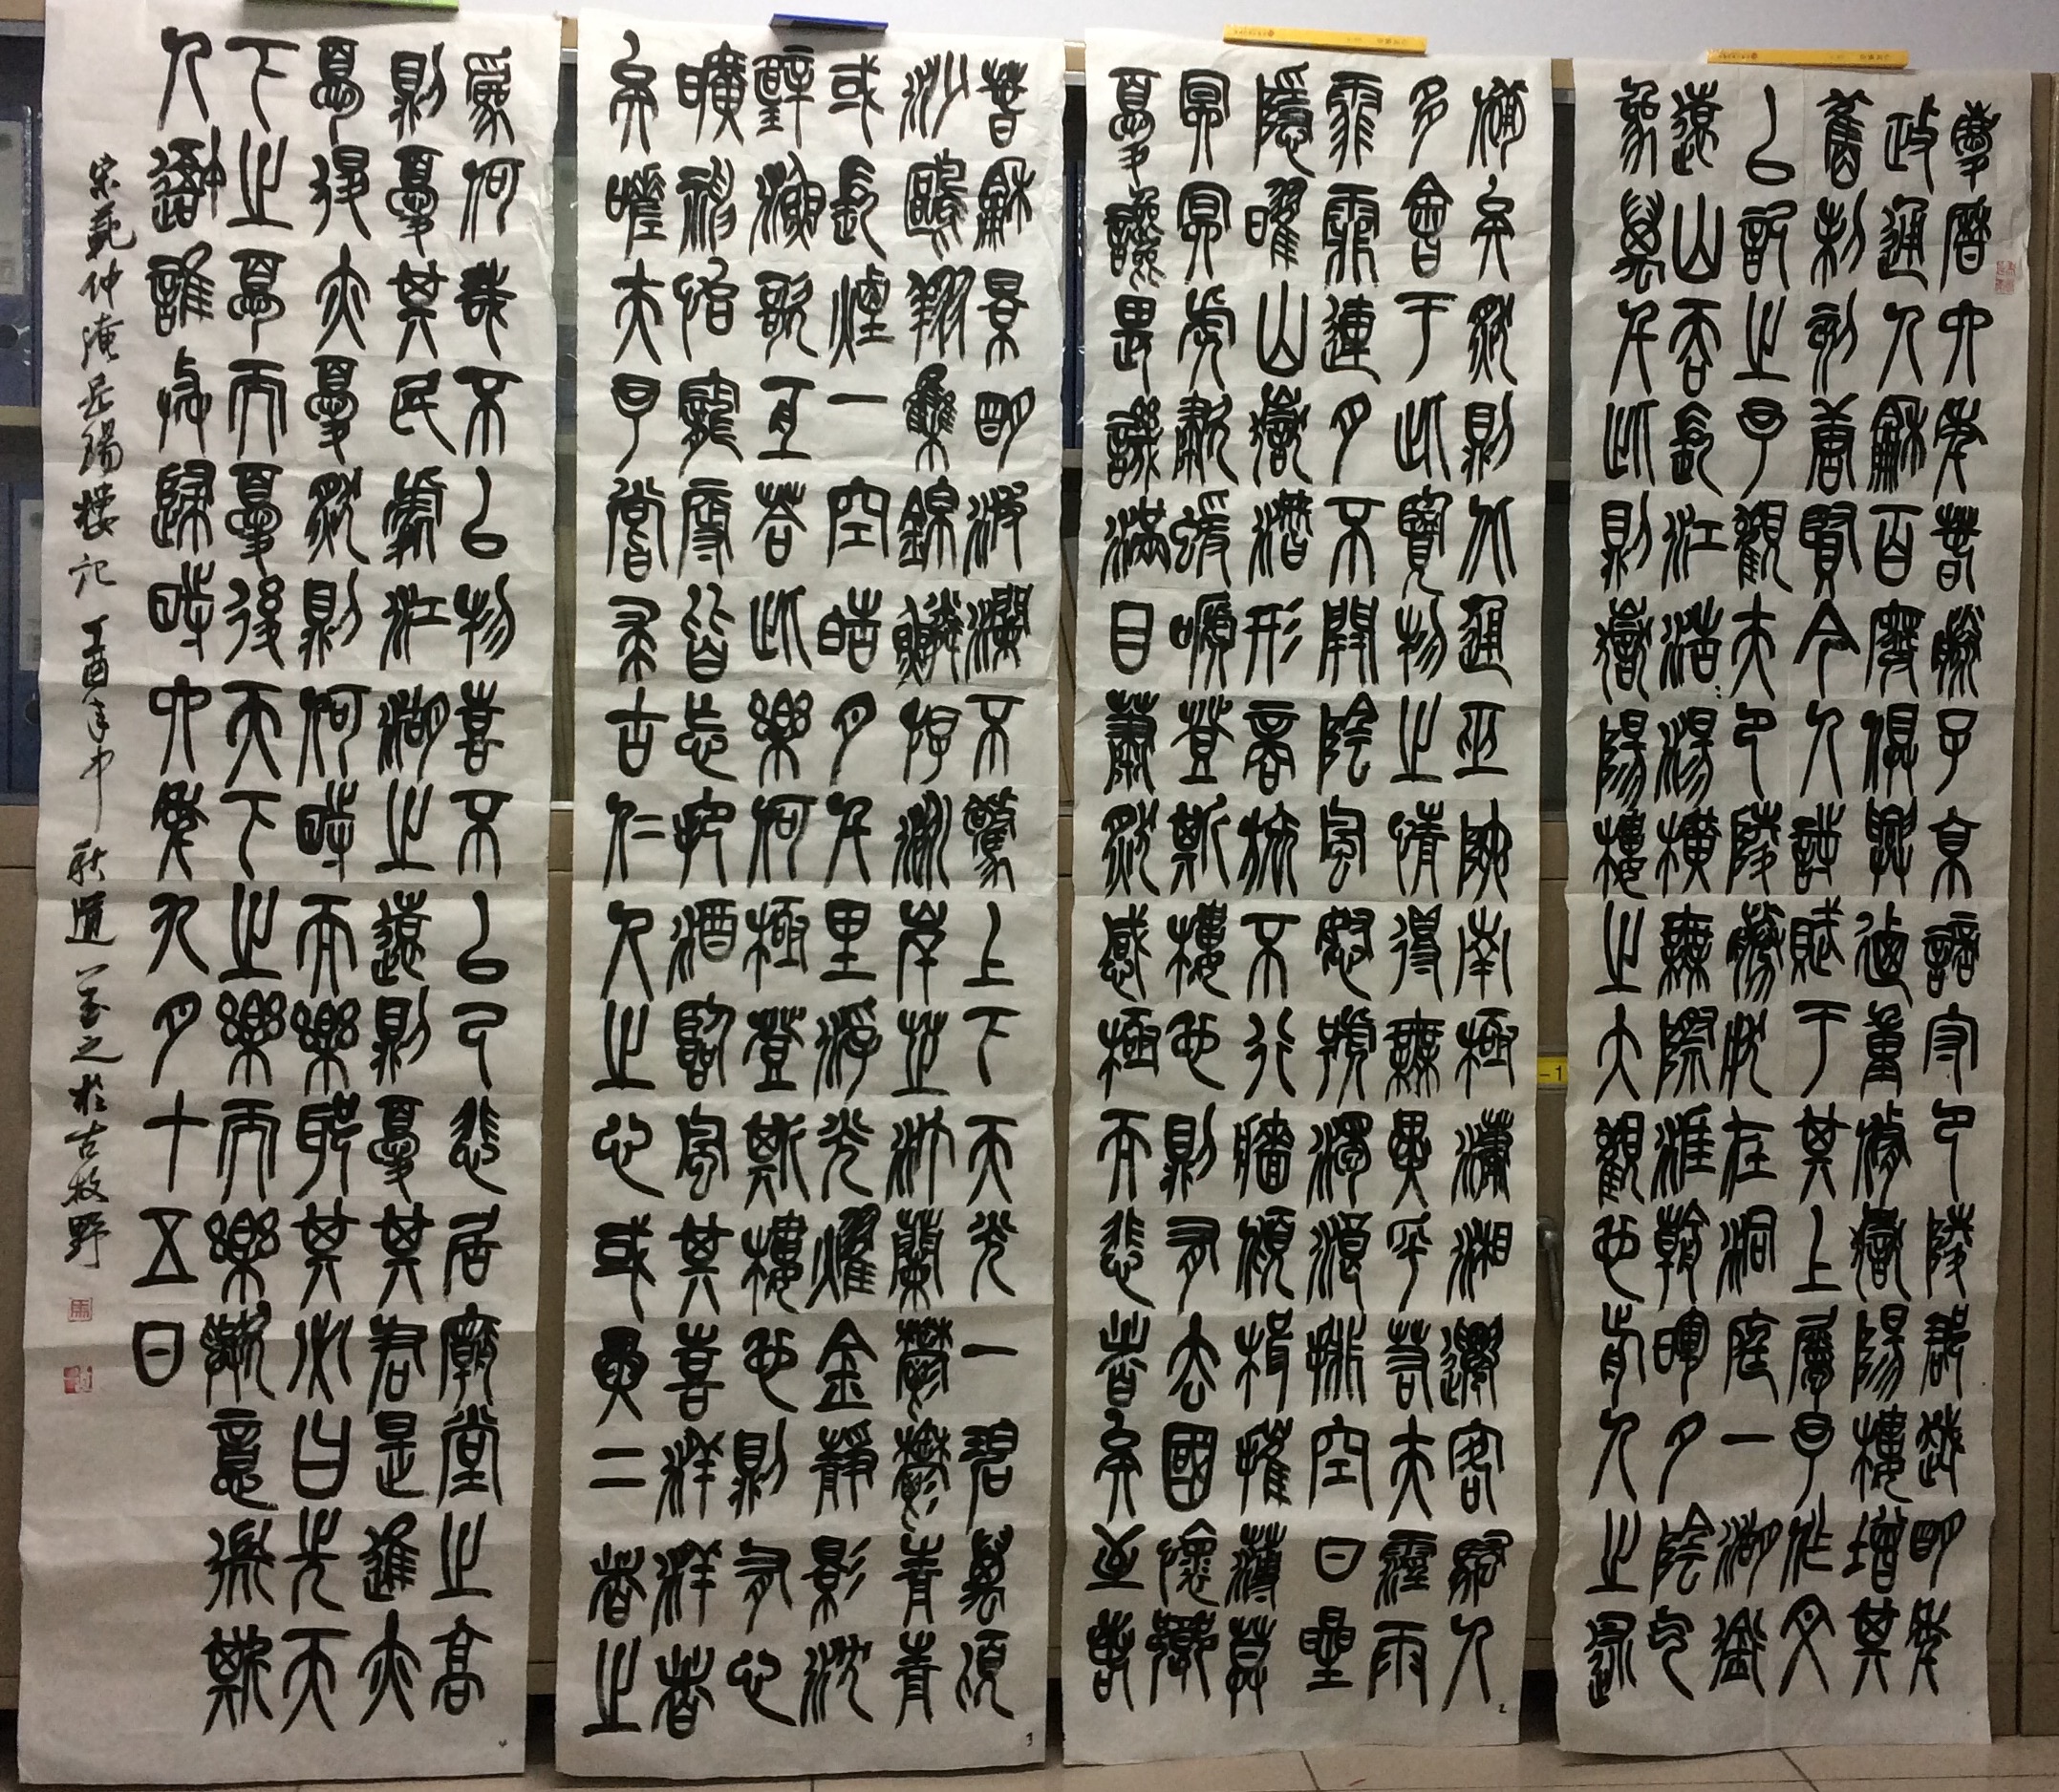 慶曆四年春滕子京謫守巴陵郡越明年
政通人龢百廢俱興迺重修嶽陽樓增其
舊制刻唐賢今人詩賦于其上屬予作文
以記之予觀夫巴陵勝狀在洞庭一湖銜
遠山吞長江浩浩湯湯橫無際涯朝暉夕陰氣
象萬千此則嶽陽樓之大觀也前人之述
備矣然則北通巫峽南極瀟湘遷客騷人
多會于此覽物之情得無異乎若夫霪雨
霏霏連月不開陰風怒號濁浪排空日星
隱曜山嶽潛形商旅不行檣傾楫摧薄暮
冥冥虎嘯猨嗁登斯樓也則有去國懷鄉
憂讒畏譏滿目蕭然感極而悲者矣至若
春龢景明波瀾不驚上下天光一碧萬頃
沙鷗翔集錦鱗游泳岸芷汀蘭鬱鬱青青
或長煙一空皓月千里浮光燿金靜影沈
璧漁歌互答此樂何極登斯樓也則有心
曠神怡寵辱皆忘把酒臨風其喜洋洋者
矣嗟夫予嘗求古仁人之心或異二者之
爲何哉不以物喜不以己悲居廟堂之高
則憂其民處江湖之遠則憂其君是進亦
憂退亦憂然則何時而樂耶其必曰先天
下之憂而憂後天下之樂而樂歟意微斯
人吾誰與歸時六年九月十五日
宋范仲淹岳陽樓記 丁酉年中秋道書之於古牧野